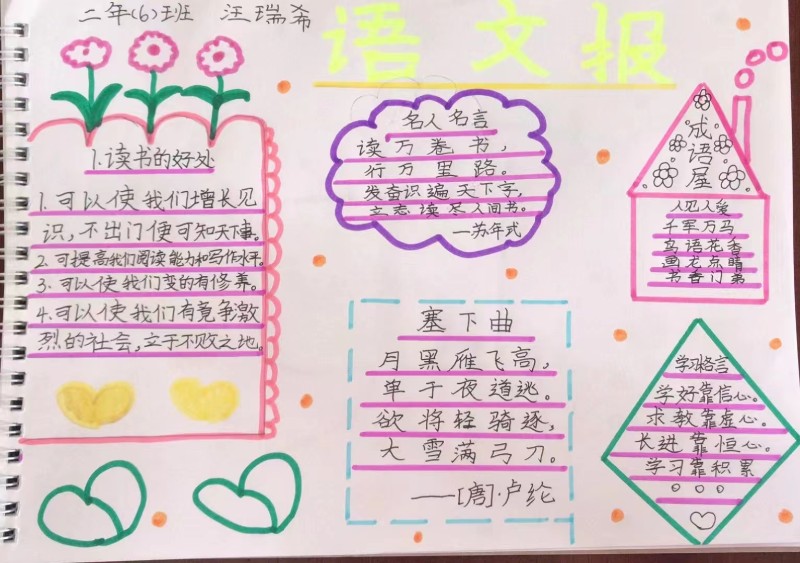 二年(6)班 汪瑞希
语文报
1.读书的好处
1.可以使我们增长见
识,不出门便可知天下事。
2.可提高我们阅读能力和写作水平。
3.可以使我们变的有修养。
4.可以使我们有竟争激
烈的社会,立于不败之地。
名人名言
读万卷书,
行万里路。
发奋识遍天下字,
立志读尽人间书。
—苏年式
成语屋
人见人爱
千军万马
鸟语花香
画龙点睛
书香门第
塞下曲
月黑雁飞高,
单于夜遁逃。
欲将轻骑逐,
大雪满弓刀。
——[唐]·卢纶
学习格言
学好靠信心。
求教靠虚心。
长进靠恒心。
学习靠积累
。。。